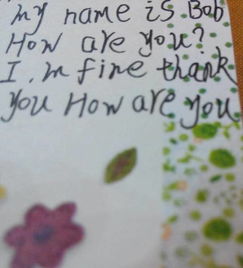 my name is Bob
How are you?
I,m fine thank
you How are you